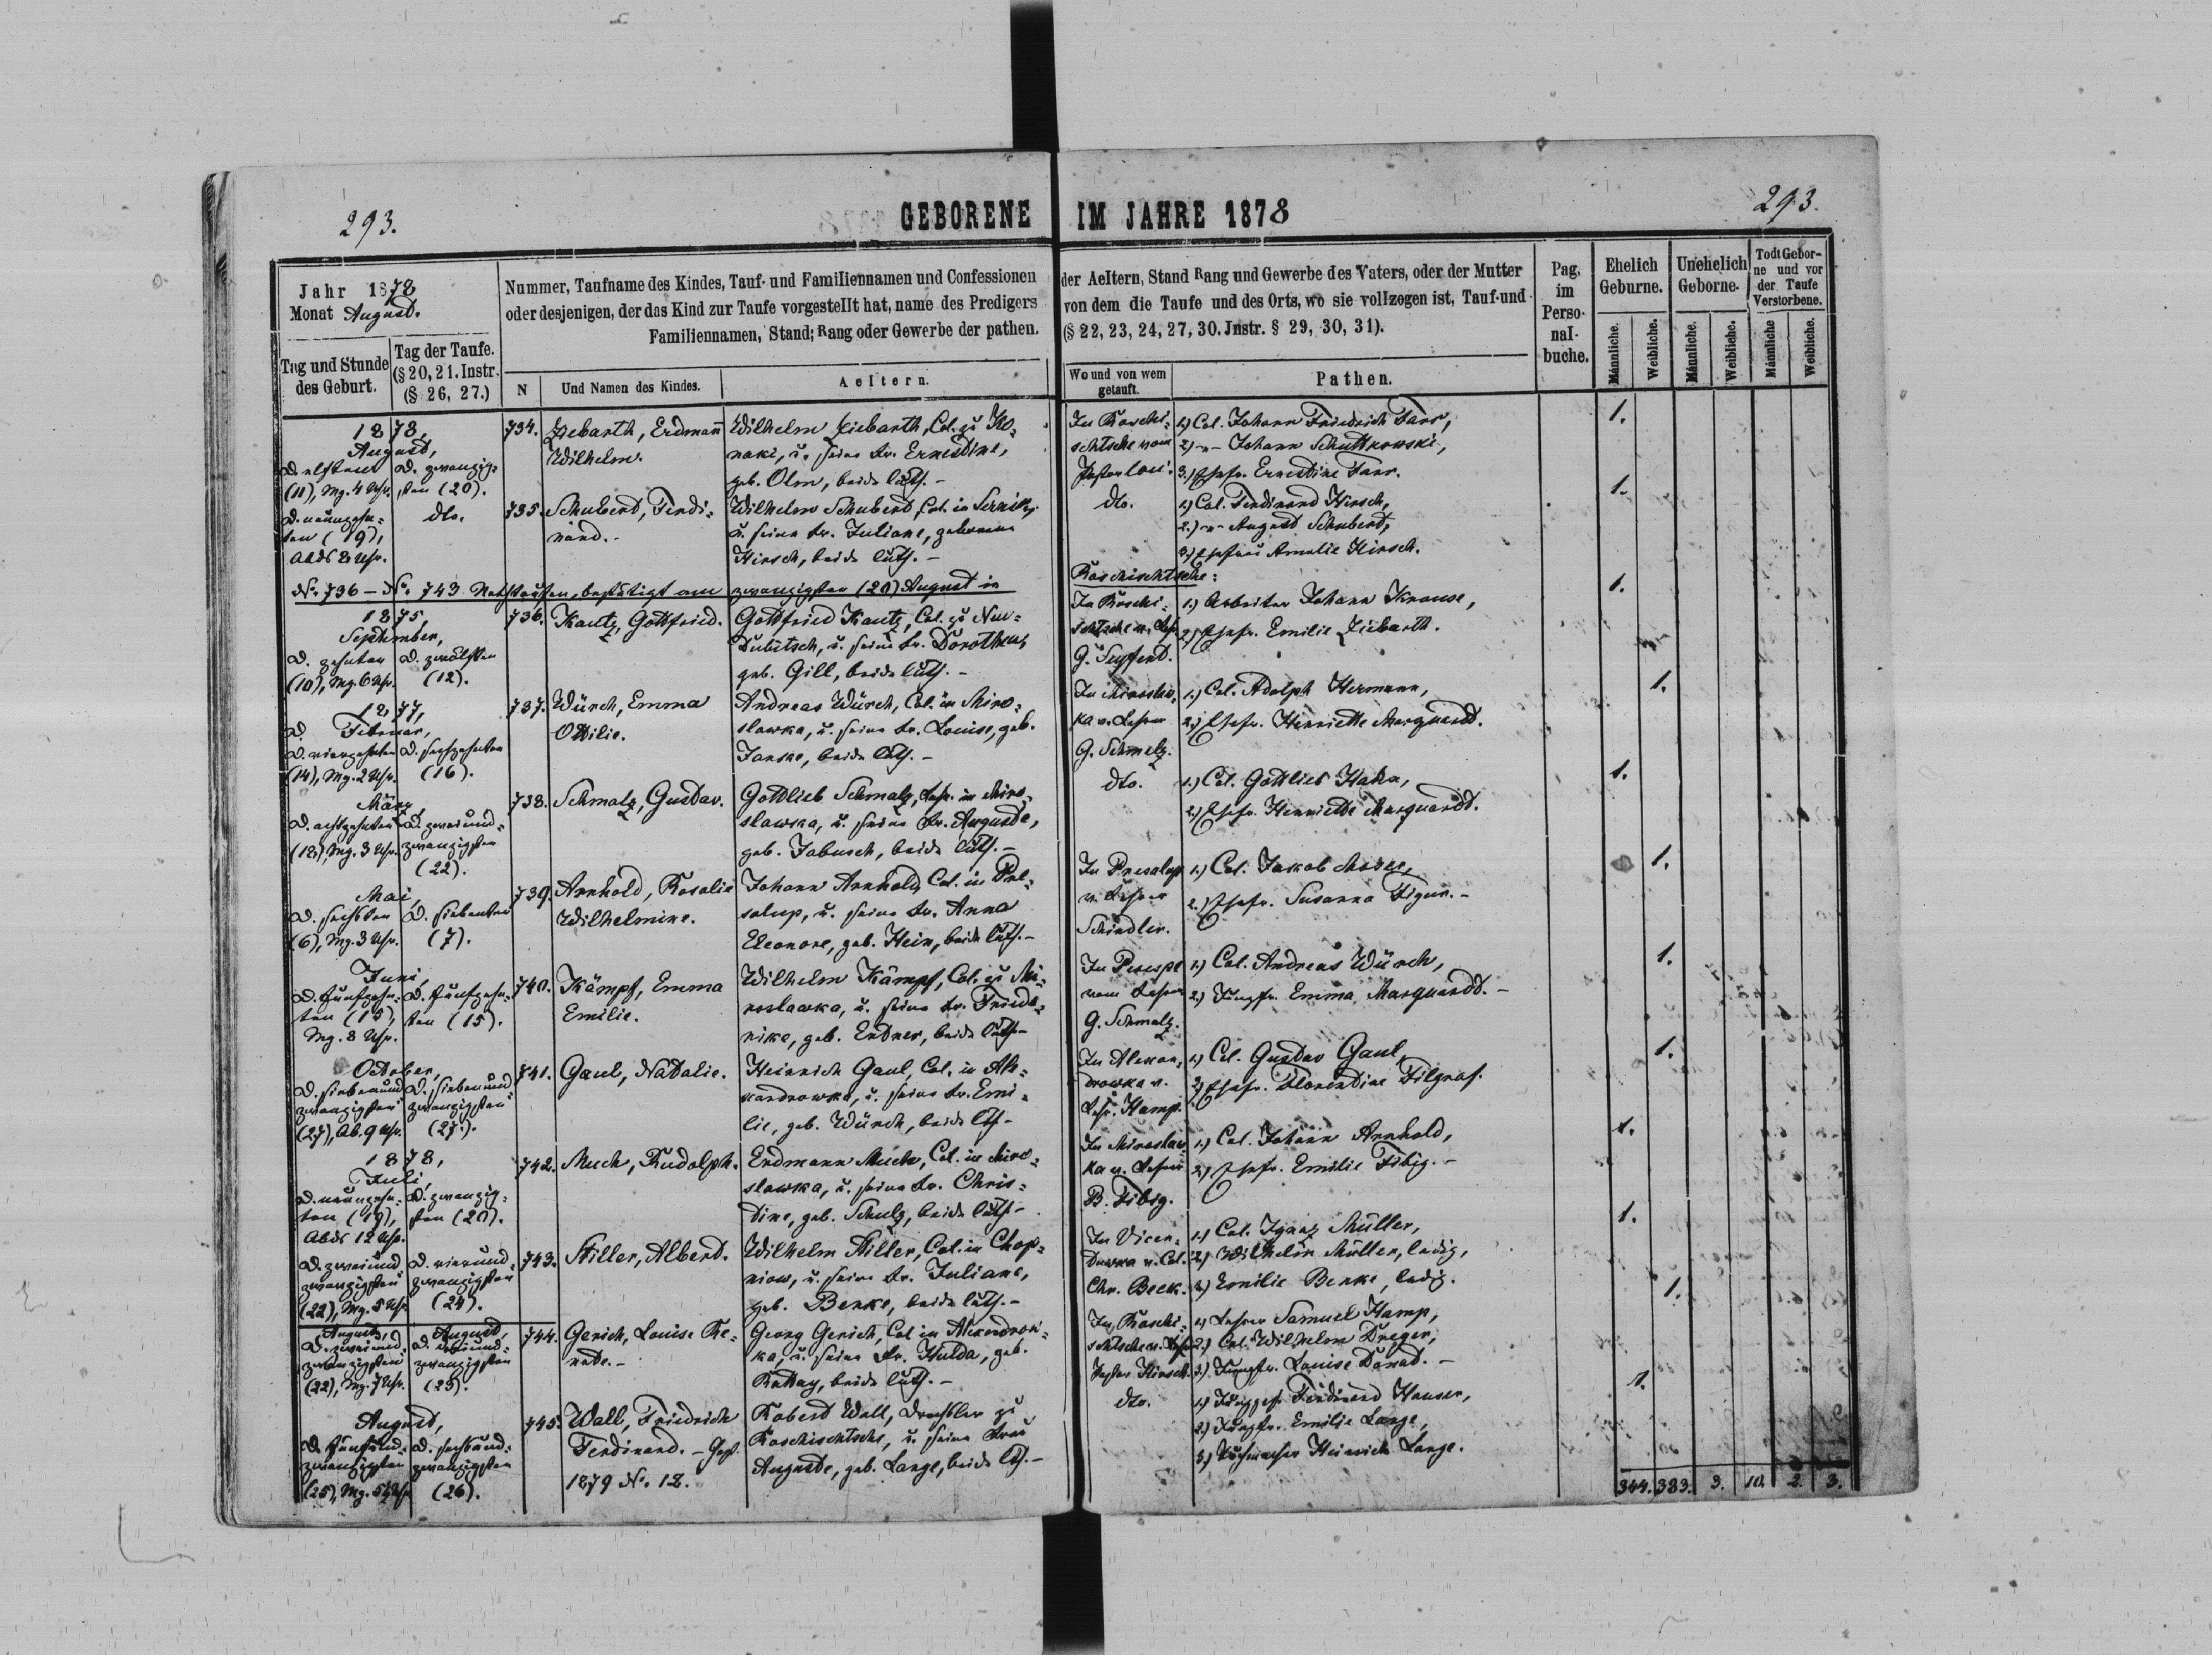 293.
GEBORENE IM JAHRE 1878
293.
Jahr 1878
Monat August.
Tag und Stunde
des Geburt.
Tag der Taufe.
(§ 20, 21. Instr.
(§ 26, 27.)
Nummer, Taufname des Kindes, Tauf- und Familiennamen und Confessionen
oder desjenigen, der das Kind zur Taufe vorgestellt hat, name des Predigers
Familiennamen, Stand; Rang oder Gewerbe der pathen.
N
Und Namen des Kindes.
Aeltern.
der Aeltern, Stand Rang und Gewerbe des Vaters, oder der Mutter
von dem die Taufe und des Orts, wo sie vollzogen ist, Tauf-und
(§ 22, 23, 24, 27, 30. Jnstr. § 29, 30, 31).
Wo und von wem
getauft.
Pathen.
Pag.
im
Perso-
nal-
buche.
Ehelich
Geburne.
Unehelich
Geborne.
Todt Gebor-
ne und vor
der Taufe
Verstorbene.
Männliche.
Weibliche.
Männliche.
Weibliche.
Männliche
Weibliche.
1878,
August,
D. elften
(11), Mg. 4 Uhr.
D. zwanzig-
sten (20).
734.
Ziebarth, Erdmann
Wilhelm.
Wilhelm Ziebarth, Col. zu Ko-
naki, u. seine Fr. Ernestine,
geb. Olm, beide luth. -
In Roschi-
schtsche vom
Pastor
1.) Col. Johann Friedrich Farr,
2.) -"- Johann Schuttkowski,
3.) Ehefr. Ernestine Farr.
1.
D. neunzehn-
ten (19),
Abds 8 Uhr.
dto.
735.
Schubert, Ferdi-
nand. -
Wilhelm Schubert, Col. in Serniki,
u. seine Fr. Juliane, geborene
Hirsch, beide luth. -
dto.
1.) Col. Ferdinand Hirsch,
2.) -"- August Schubert,
3.) Ehefrau Amalie Hirsch.
1.
No. 736 - No. 743 Nothtaufen, bestätigt am zwanzigsten (20) August in
Roschischtsche:
1875,
September,
D. zehnten
(10), Mg. 6 Uhr.
D. zwölften
(12).
736.
Kautz, Gottfried.
Gottfried Kautz, Col. zu Neu-
Dubitsch, u. seine Fr. Dorothea,
geb. Gill, beide luth. -
In Roschi-
schtsche v.
G. Seyfert.
1.) Arbeiter Johann Krause,
2.) Ehefr. Emilie Ziebarth.
1.
1877,
Februar,
D. vierzehnten
(14), Mg. 2 Uhr.
D. sechzehnten
(16).
737.
Würch, Emma
Ottilie.
Andreas Würch, Col. in Miro-
slawka, u. seine Fr. Louise, geb.
Janske, beide luth. -
In Miroslaw-
ka v. Lehrer
G. Schmalz.
1.) Col. Adolph Hermann,
2.) Ehefr. Henriette Marquardt.
1.
März,
D. achtzehnten
(18), Mg. 3 Uhr.
D. zweiund-
zwanzigsten
(22).
738.
Schmalz, Gustav.
Gottlieb Schmalz, Lehr. in Miro-
slawka, u. seine Fr. Auguste,
geb. Jabusch, beide luth. -
dto.
1.) Col. Gottlieb Hahn,
2.) Ehefr. Henriette Marquardt.
1.
Mai,
D. sechsten
(6), Mg. 3 Uhr.
D. siebenten
(7).
739.
Arnhold, Rosalie
Wilhelmine.
Johann Arnhold, Col. in Pre-
salup, u. seine Fr. Anna
Eleonore, geb. Hein, beide luth. -
In Presalup
v. Lehrer
Schindler.
1.) Col. Jakob
2.) Ehefr. Susanna Figur. -
1.
Juni,
D. fünfzehn-
ten (15),
Mg. 8 Uhr.
D. fünfzehn-
ten (15).
740.
Kämpf, Emma
Emilie.
Wilhelm Kämpf, Col. zu Mi-
roslawka, u. seine Fr. Friede-
rike, geb. Endner, beide luth. -
In Perespe
vom Lehrer
G. Schmalz.
1.) Col. Andreas Würch,
2.) Jungfr. Emma Marquardt. -
1.
October,
D. siebenund
zwanzigsten
(27), Ab. 9 Uhr.
D. siebenund
zwanzigsten
(27).
741.
Gaul, Natalie.
Heinrich Gaul, Col. in Ale-
xandrowka, u. seine Fr. Emi-
lie, geb. Würch, beide lth. -
In Alexan-
drowka v.
Lehr. Hamp.
1.) Col. Gustav Gaul,
2.) Ehefr. Florentine Filgraf.
1.
1878,
Juli,
D. neunzehn-
ten (19),
Abds 12 Uhr.
D. zwanzig-
sten (20).
742.
Much, Rudolph.
Erdmann Much, Col. in Miro-
slawka, u. seine Fr. Chris-
tine, geb. Schulz, beide luth. -
In Miroslaw-
ka v. Lehrer
B. Fibig.
1.) Col. Johann Arnhold,
2.) Ehefr. Emilie Fibig. -
1.
D. zweiund
zwanzigsten
(22), Mg. 5 Uhr.
D. vierund-
zwanzigsten
(24).
743.
Stiller, Albert.
Wilhelm Stiller, Col. in Chop-
niow, u. seine Fr. Juliane,
geb. Benke, beide luth. -
v. Col.
Chr. Beck.
1.) Col. Ignaz Müller,
2.) Wilhelm Müller, ledig,
3.) Emilie Benke, ledig.
1.
August,
D. zweiund-
zwanzigsten
(22), Mg. 7 Uhr.
August,
zwanzigsten
(23).
744.
Gerich, Louise Re-
nate. -
Georg Gerich, Col in Alexandrow-
ka, u. seine Fr. Hulda, geb.
Rattay, beide luth. -
In Roschi-
schtsche v.
1.) Lehrer Samuel Hamp,
2.) Col. Wilhelm Dreger,
3.) Jungfr. Louise
1.
August,
D. fünfund-
zwanzigsten
(25), Mg. 5½ Uhr
D. sechsund-
zwanzigsten
(26).
745.
Wall, Friedrich
Ferdinand. - Gest.
1879 No. 12.
Robert Wall, Drechsler zu
Roschischtsche, u. seine Frau
Auguste, geb. Lange, beide lth. -
dto.
1.) Jungges. Ferdinand Hauser,
2.) Jungfr. Emilie Lange,
3.) Tuchmacher Heinrich Lange.
1.
344. 383. 3. 10. 2. 3.